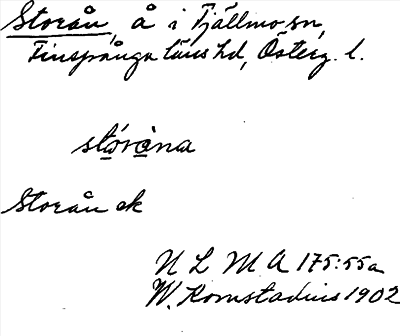 Storån, å i Tjällmo sn,
Finspånga läns hd, Österg. l.
stórạ̀na
Storån ek
N L M A 175:55a
W. Komstadius 1902